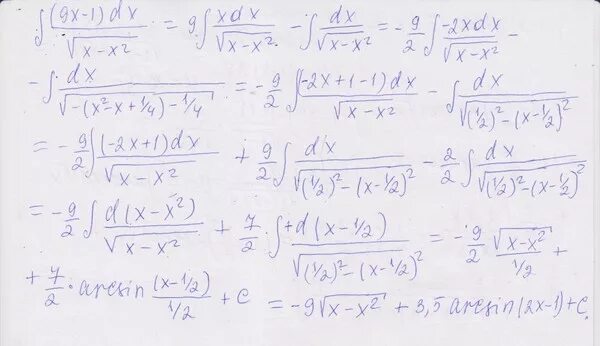 ∫ (9x-1)dx / √(x-x²) = 9∫ xdx / √(x-x²) - ∫ dx / √(x-x²) = -9/2 ∫ -2xdx / √(x-x²) -
- ∫ dx / √(-(x²-x+1/4)-1/4) = -9/2 ∫ (-2x+1-1)dx / √(x-x²) - ∫ dx / √((1/2)²-(x-1/2)²)
= -9/2 ∫ (-2x+1)dx / √(x-x²) + 9/2 ∫ dx / √((1/2)²-(x-1/2)²) - 2/2 ∫ dx / √((1/2)²-(x-1/2)²)
= -9/2 ∫ d(x-x²) / √(x-x²) + 7/2 ∫ +d(x-1/2) / √((1/2)²-(x-1/2)²) = -9/2 √(x-x²) / 1/2 +
+ 7/2 · arcsin (x-1/2) / 1/2 + c = -9√(x-x²) + 3,5 arcsin(2x-1)+c.